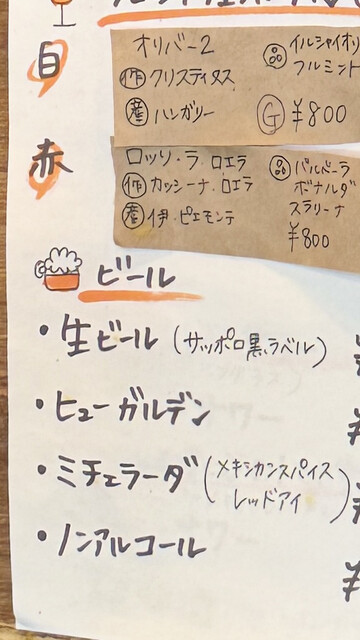 白
オリバー2
㊞作 クリスティヌス
産 ハンガリー
品 イルシャイオリ
フルミント
G ¥800
赤
ロッソ・ラ・ロエラ
作 カッシーナ・ロエラ
産 伊・ピエモンテ
品 バルベーラ
ボナルダ
スラリーナ
¥800
ビール
・生ビール(サッポロ黒ラベル)
・ヒューガルデン
・ミチェラーダ(メキシカンスパイス
レッドアイ)
・ノンアルコール